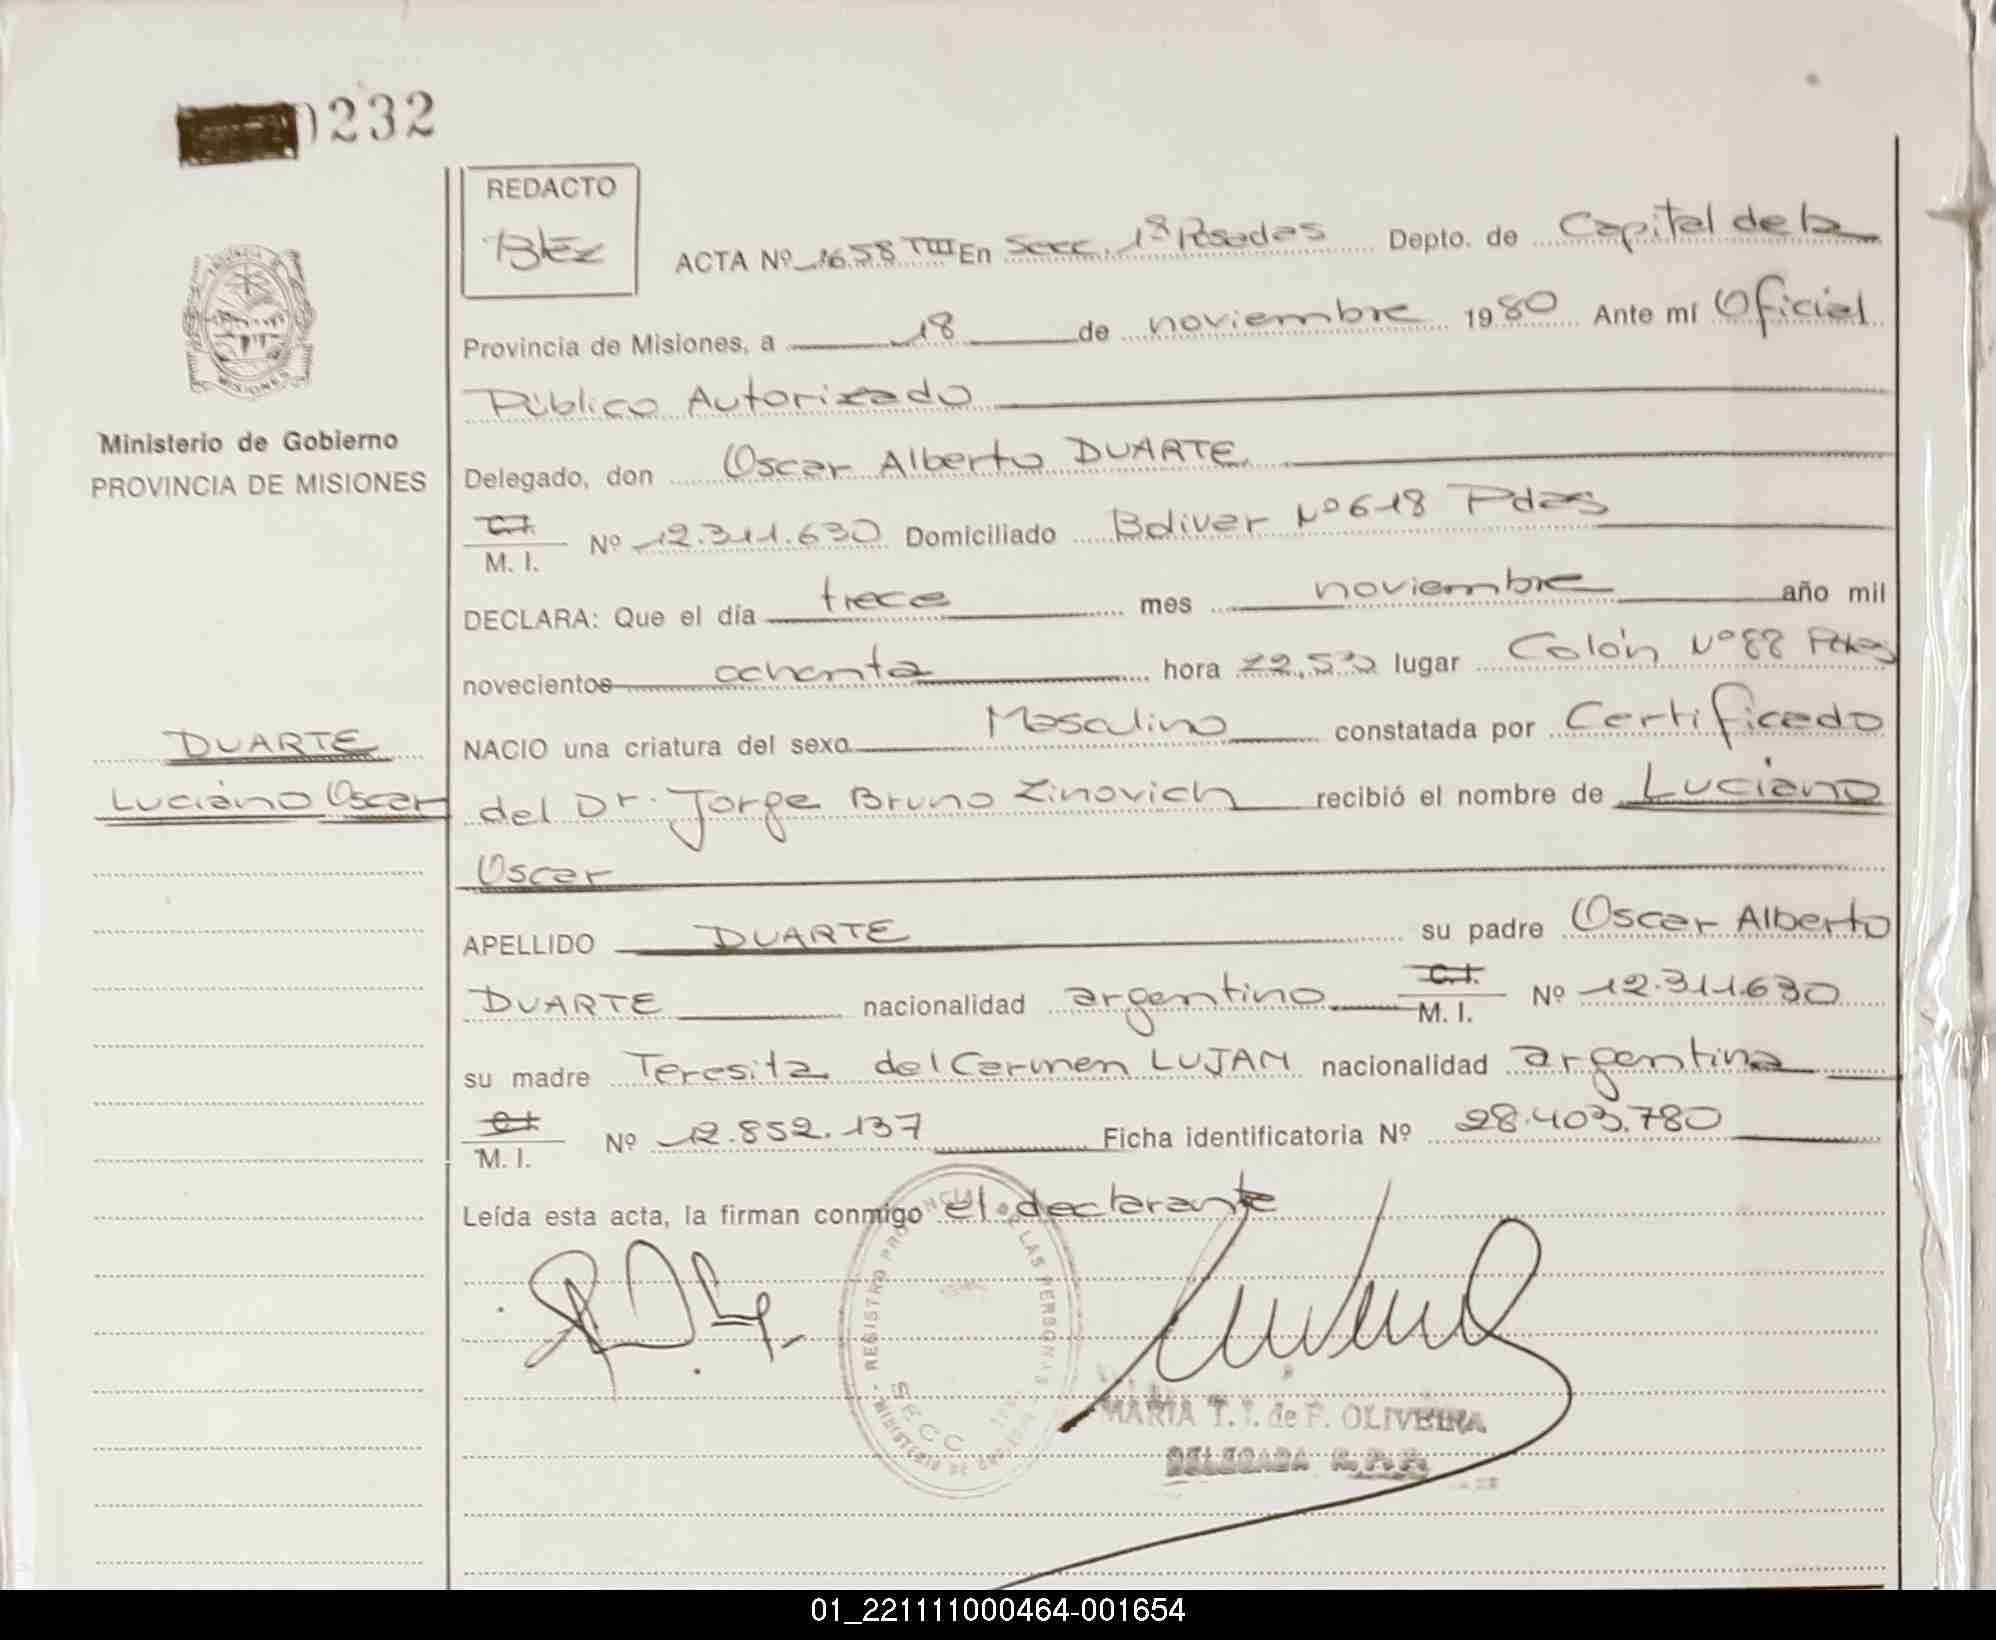 0232
REDACTO
Báez
ACTA Nº 1658 TIII En Secc. 1ª Posadas Depto. de Capital de la
Provincia de Misiones, a 18 de noviembre 1980 Ante mí Oficial
Público Autorizado
Ministerio de Gobierno
PROVINCIA DE MISIONES
Delegado, don Oscar Alberto DUARTE
C.I.
M. I. Nº 12.311.630 Domiciliado Bolivar Nº 618 Pdas
DECLARA: Que el día trece mes noviembre año mil
novecientos ochenta hora 22,50 lugar Colón Nº 88 Pdas
NACIO una criatura del sexo Masculino constatada por Certificado
DUARTE
Luciano Oscar
del Dr. Jorge Bruno Zinovich recibió el nombre de Luciano
Oscar
APELLIDO DUARTE su padre Oscar Alberto
DUARTE nacionalidad argentino C.I. M. I. Nº 12.311.630
su madre Teresita del Carmen LUJAN nacionalidad argentina
C.I.
M. I. Nº 12.852.137 Ficha identificatoria Nº 28.403.780
Leída esta acta, la firman conmigo el declarante
REGISTRO PROVINCIAL DE LAS PERSONAS
SECC
MINISTERIO DE
MARIA T. I. de F. OLIVEIRA
DELEGADA R. P. P.
01_221111000464-001654